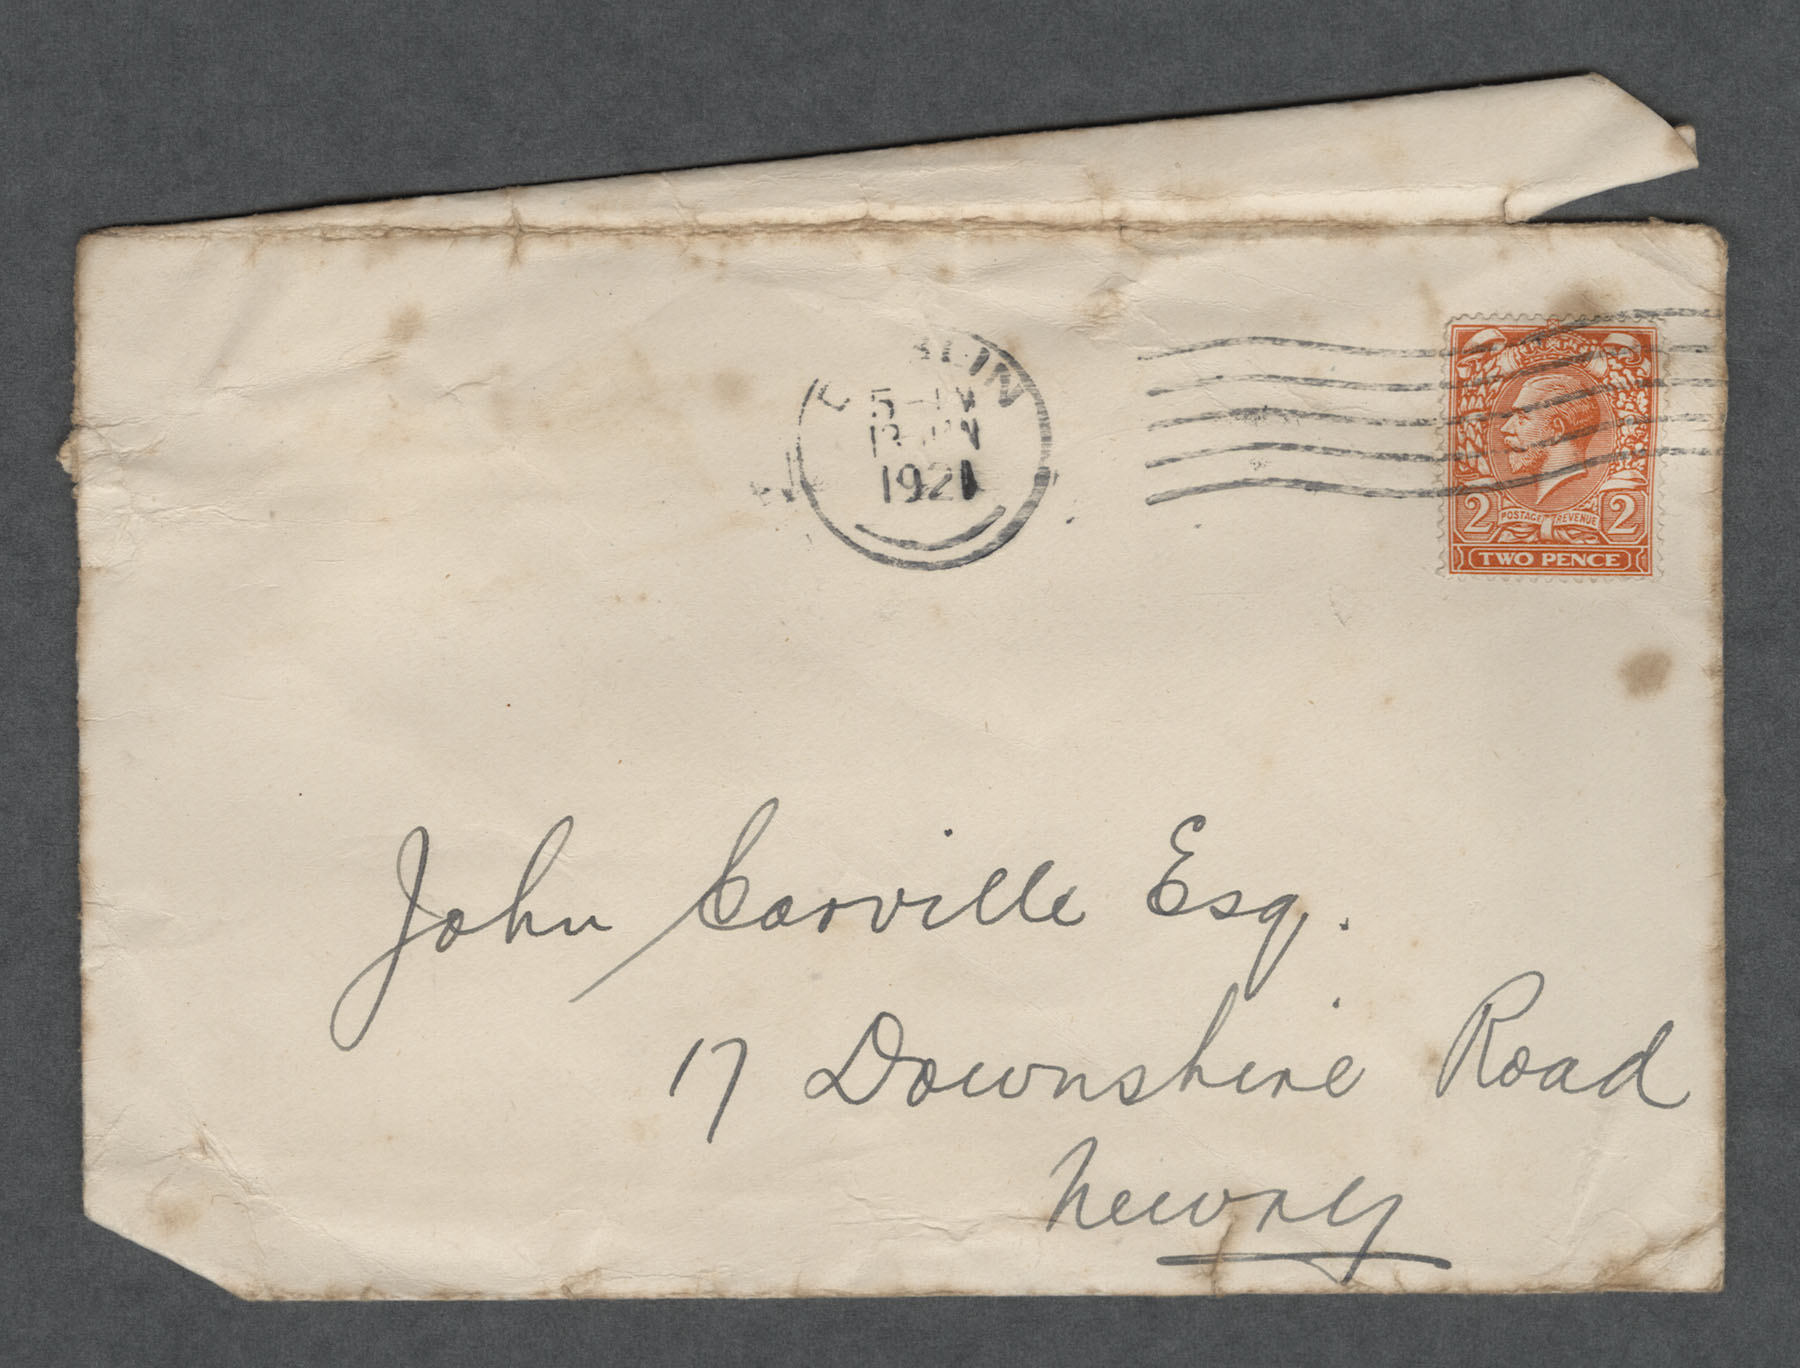 1921
2 POSTAGE REVENUE 2
TWO PENCE
John Carville Esq.
17 Downshire Road
Newry